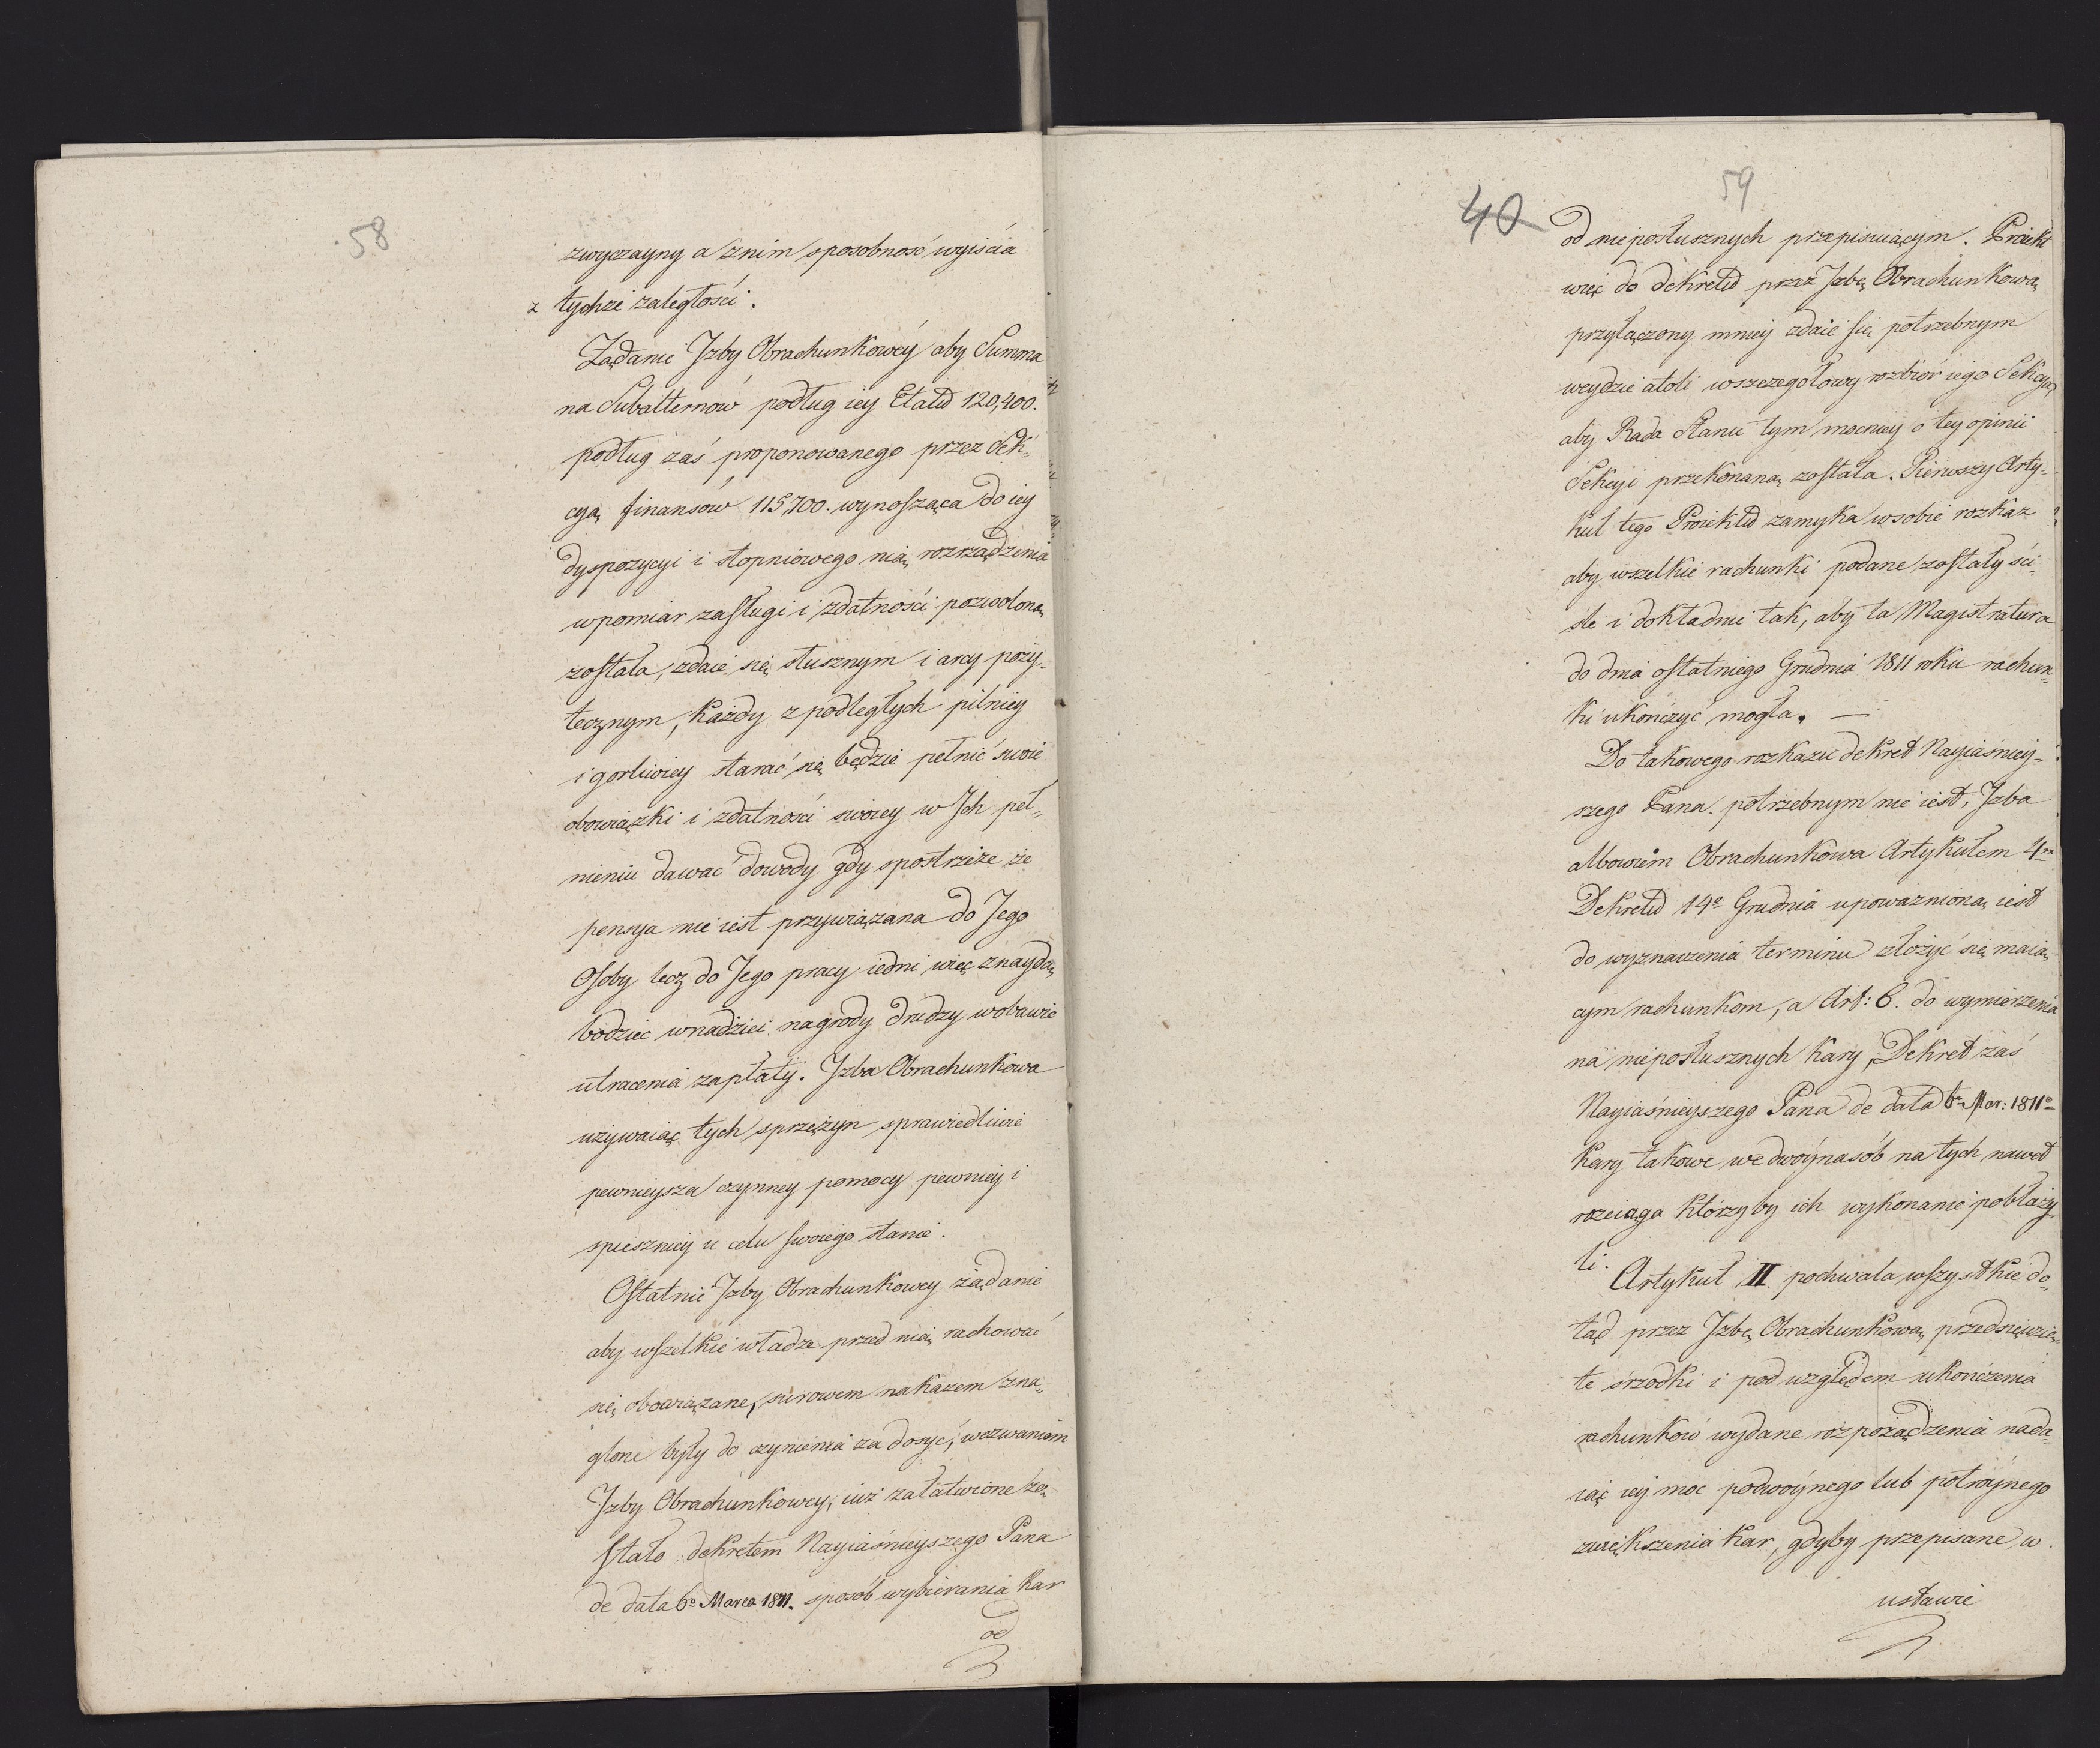 58
zwyczayny a znim sposobność wyiścia
z tychże zaległości.
Żądanie Jzby Obrachunkowéy aby Summa
na Subalternów podług iey Etatu 120,400.
podług zaś proponowanego przez Sek„
cyą finansów 115,700. wynosząca do iey
dyspozycyi i stopniowego nią rozrządzenia
wpomiar zasługi i zdatności pozwoloną
została, zdaie się słusznym i arcy poży„
tecznym, każdy z podległych pilniey
i gorliwiey starać się będzie pełnić swoie
obowiązki i zdatności swoiey w Jch peł„
nieniu dawać dowody gdy spostrzeże że
pensya nie iest przywiązana do Jego
Osoby lecz do Jego pracy iedni więc znaydą
bodziec wnadziei nagrody drudzy wobawie
utracenia zapłaty. Jzba Obrachunkowa
używaiąc tych sprężyn sprawiedliwie
pewnieysza czynney pomocy pewniey i
spieszniey u celu swoiego stanie.
Ostatnie Jzby Obrachunkowey żądanie
aby wszelkie władze przed nią rachować
się obowiązane, surowem nakazem zna„
glone były do czynienia zadosyć, wezwaniom
Jzby Obrachunkowey, iuż załatwione zo„
stało dekretem Nayiaśnieyszego Pana
de data 6º Marca 1811. sposób wybierania kar
od
59
40
od nieposłusznych przepisuiącym. Proiekt
więc do dekretu przez Jzbę Obrachunkową
przyłączony mniey zdaie się potrzebnym
weydzie atoli wszczegołowy rozbiór iego Sekcya,
aby Rada Stanu tym mocniey o tey opinii
Sekcyi przekonaną została. Pierwszy Arty„
kuł tego Proiektu zamyka wsobie rozkaz
aby wszelkie rachunki podane zostały ści„
śle i dokładnie tak, aby ta Magistratura
do dnia ostatniego Grudnia 1811 roku rachun„
ki ukończyć mogła. —
Do takowego rozkazu dekret Nayiaśniey„
szego Pana potrzebnym nie iest, Jzba
albowiem Obrachunkowa Artykułem 4m
Dekretu 14º Grudnia upoważnioną iest
do wyznaczenia terminu złożyć się maią„
cym rachunkom, a Art: 6. do wymierzenia
na nieposłusznych kary, Dekret zaś
Nayiaśnieyszego Pana de data 6º Mar: 1811º
kary takowe we dwóynasób na tych nawet
rozciąga którzyby ich wykonanie pobłaży„
li.
Artykuł II pochwala wszystkie do„
tąd przez Jzbę Obrachunkową przedsięwzię„
te srzodki i pod względem ukończenia
rachunków wydane rozporządzenia nada„
iąc iey moc podwóynego lub potróynego
zwiększenia kar, gdyby przepisane w
ustawie